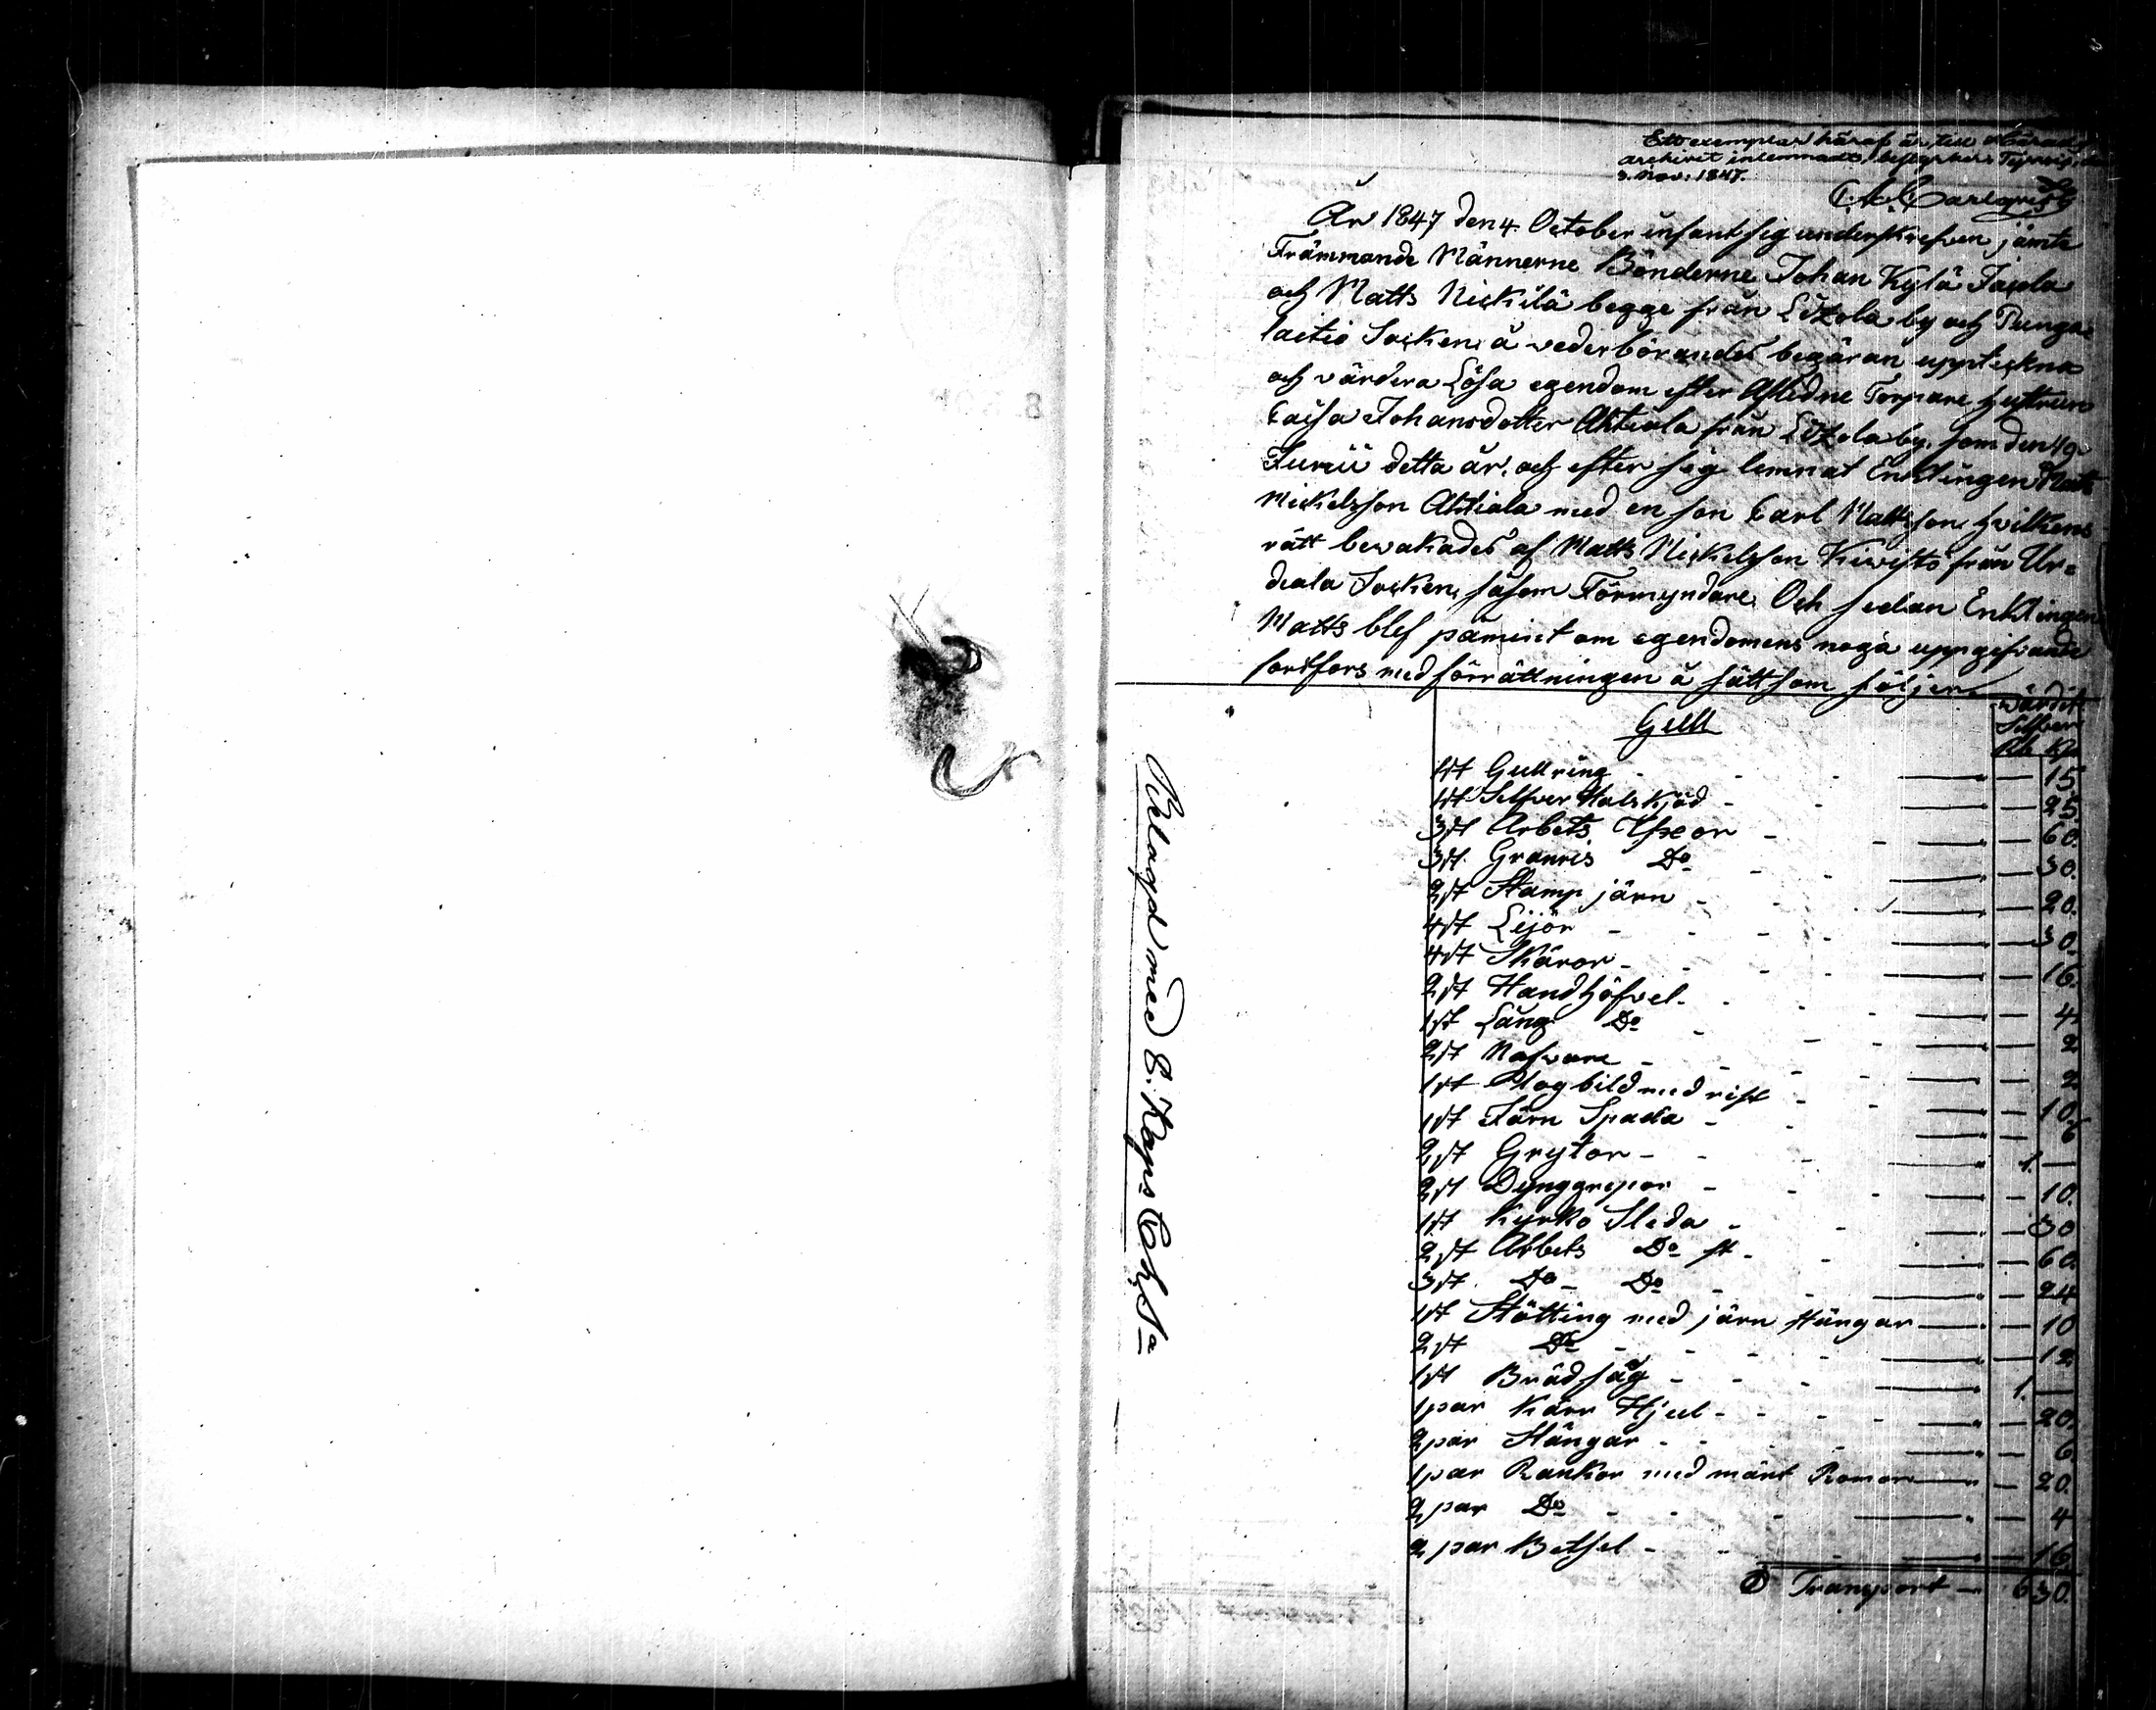 Ett exemplar häraf är till Härads
archivet inlemnadt, betygker. Tyrvis, den
3. Nov. 1847.
C. A. Carlqvist
År 1847 den 4. October infant sig underskrefven jämte
Främmande Männerne Bönderne Johan Kylä Jaula
och Matts Nickilä begge från Liżola by och Punga=
laitio Socken, å vederbörandes begäran uppteckna
och värdera Lösa egendom efter Aflidne Torpare hustrun
Caisa Johansdotter Ahtiala från Liżola by, som den 19.
Junii detta år, och efter sig lemnat Enklingen Matts
Mickelsson Ahtiala med en son Carl Mattsson, hvilkens
rätt bevakades af Matts Mickelsson Kivistö från Ur=
diala Socken, såsom Förmyndare. Och sedan Enklingen
Matts blef påmint om egendomens noga uppgifvande
fortfors med förrättningen å sätt som följer
wärdit
Silfver
Rb. Kp.
Gull
1 st Gullring - - - — 15.
1 st Silfver Halskjäd - - — 25.
3 st Arbets Yxor - - — 60.
3 st. Granris Do - - — 30.
2 st Stamp järn - - — 20.
4 st Lijör - - - - — 30.
4 st Skäror - - - - — 16.
2 st Handhöfvel - - - — 4.
1 st Lång Do - - - — 2
2 st Nafvare - - - — 2
1 st Plogbild med rist - - — 10.
1 st Järn Spada - - — 6
2 st Grytor - - - 1. —
2 st Dynggrepar - - - — 10.
1 st Kyrko Släda - - — 30
2 st Arbets Do st - - — 60.
3 st. Do - Do - - — 24
1 st Stötting med järn stängar — 10
2 st Do - - - - — 12
1 st Brädsåg - - - 1. —
1 par Kärr Hjul - - - - — 20.
2 par Stängar - - - - — 6.
1 par Rankor med mänt Romor — 20.
2 par Do - - - — 4
2 par Betsel - - - — 16
Transport — 6 30.
Belagd med 8. Kops Ch. Sa